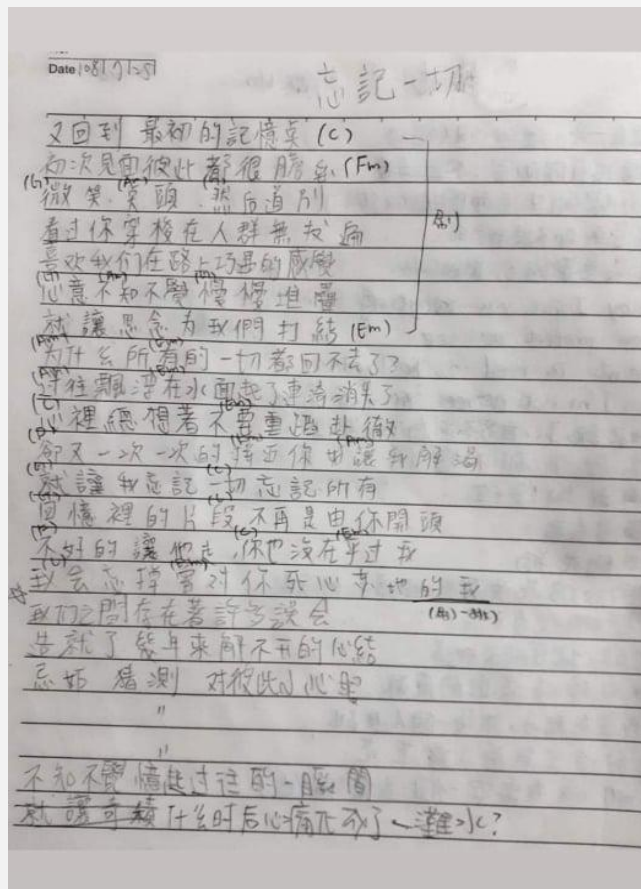 Date 108/7/25
忘記一切
又回到 最初的記憶奌 (C)
初次見面彼此都很膽 (Fm)
微笑.奌頭.然后道別
看过你穿梭在人群無
喜欢我们在路上巧遇的感覺
心意不知不覺慢慢堆疊
就讓思念为我們打結 (Em)
为什么所有的一切都回不去了?
过往飄浮在水面起了漣漪消失了
心裡總想著不要重蹈
卻又一次一次的接近你
就讓我忘記一切忘記所有
回憶裡的片段不再是由你開頭
不好的讓他走,你也沒在乎过我
我会忘掉 对你死心 地的我
我们之間存在著許多誤会
造就了幾年來解不开的心結
忌妒 猜測 对彼此心
"
"
不知不覺憶起过往的一瞬間
就讓 什么时后心痛 了一灘水?